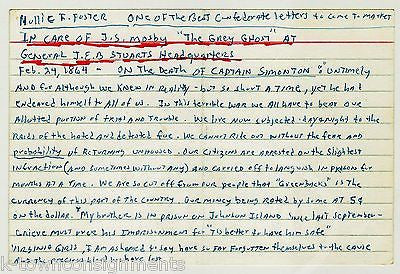 Mollie E. Foster One of the Best Confederate letters to come to market
In care of J.S. Mosby "The Grey Ghost" at
General J.E.B Stuarts Headquarters
Feb. 24, 1864 - On the Death of Captain Simonton "so untimely
And for although we knew in reality but so short a time, yet he had
endeared himself to all of us. In this terrible war we all have to bear our
allotted portion of trial and trouble. We live now subjected day & night to the
raids of the hated and detested foe. We cannot ride out without the fear and
probability of returning unhorsed. Our citizens are arrested on the slightest
infraction (and sometime without any) and carried off to languish in prison for
months at a time. We are so cut off from our people that "Greenbacks" is the
currency of this part of the country. Our money being rated by some at 5¢
on the dollar. "My brother is in prison on Johnson Island since last September-
Grieve must over his imprisonment for "tis better to have him safe"
"Virginia Girls, I am ashamed to say have so far forgotten themselves to the cause
And the precious blood we have lost.
k-townconsignments